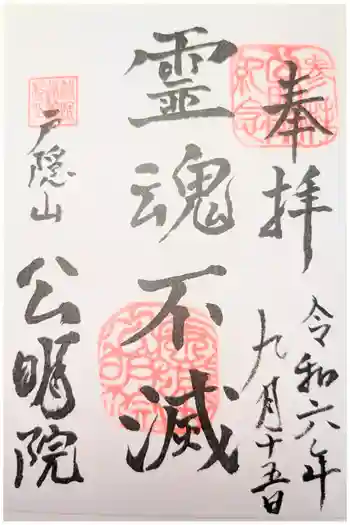 奉拝
令和六年
九月十五日
靈魂不滅
戸隠山
公明院